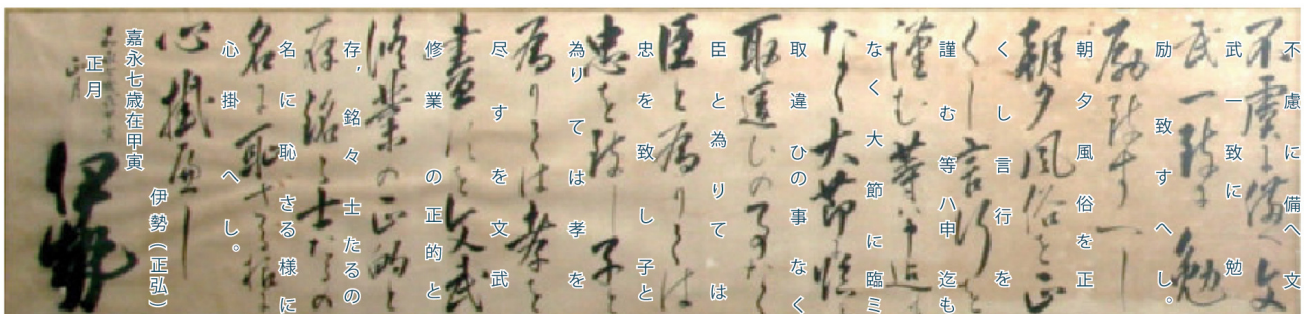 不慮に備へ文
武一致に勉
励致すへし。
朝夕風俗を正
くし言行を
謹む等ハ申迄も
なく大節に臨ミ
取違ひの事なく
臣と為りては
忠を致し子と
為りては孝を
尽すを文武
修業の正的と
存,銘々士たるの
名に恥さる様に
心掛へし。
嘉永七歳在甲寅
正月
伊勢(正弘)